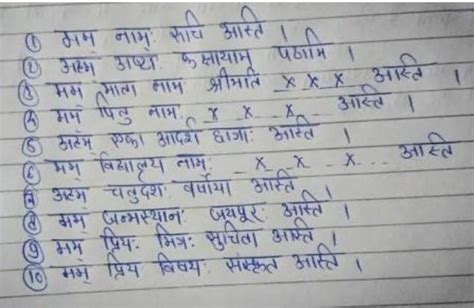 ① मम् नामः रुचि अस्ति ।
② अहम् अष्ट कक्षायाम् पठामि ।
③ मम् माता नाम श्रीमति x x x अस्ति ।
④ मम् पितृ नामः x x x अस्ति ।
⑤ अहम् एका आदर्श छात्राः अस्ति ।
⑥ मम् विद्यालय नामः x x x अस्ति
⑦ अहम् चतुदशः वर्षीया अस्ति ।
⑧ मम् जन्मस्थानः जयपुरः अस्ति ।
⑨ मम् प्रियः मित्रः सुचिता अस्ति ।
⑩ मम् प्रिय विषयः संस्कृत अस्ति ।